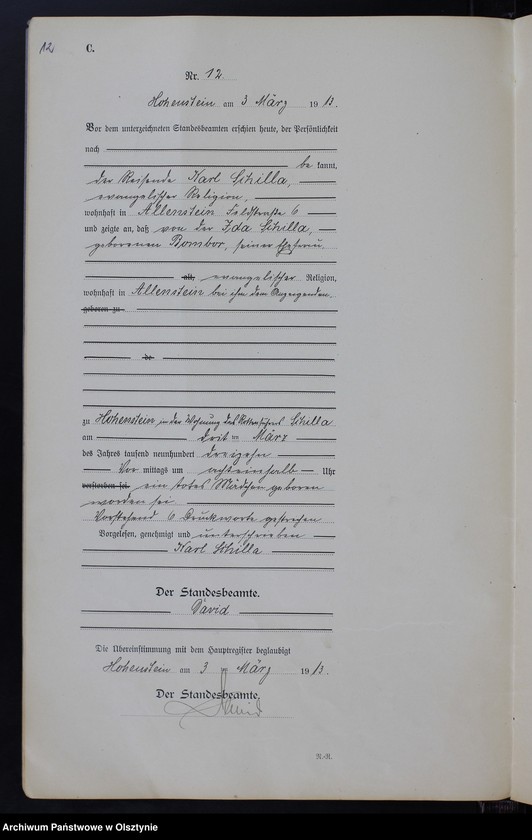 12
C.
Nr. 12
Hohenstein am 3 März 1913.
Vor dem unterzeichneten Standesbeamten erschien heute, der Persönlichkeit
nach
be kannt,
der Reisende Karl Schilla,
evangelischer Religion,
wohnhaft in Allenstein 6
und zeigte an, daß von der Ida Schilla,
geborenen Bombor, seiner Ehefrau
alt, evangelischer Religion,
wohnhaft in Allenstein bei ihm dem Anzeigenden,
geboren zu
de
zu Hohenstein in der Wohnung des Schilla
am drit ten März
des Jahres tausend neunhundert dreizehn
Vor mittags um achteinhalb Uhr
verstorben sei. ein totes Mädchen geboren
worden sei
Vorstehend 6 Druckworte gestrichen
Vorgelesen, genehmigt und unterschrieben
Karl Schilla
Der Standesbeamte.
David
Die Übereinstimmung mit dem Hauptregister beglaubigt
Hohenstein am 3 ten März 1913.
Der Standesbeamte.
David
N.-R.
Archiwum Państwowe w Olsztynie